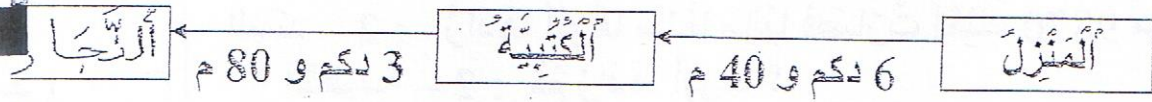 أَلْمَنْزِلُ
6 دكم و 40 م
أَلْكُتُبِيَّةُ
3 دكم و 80 م
أَلنَّجَا ر